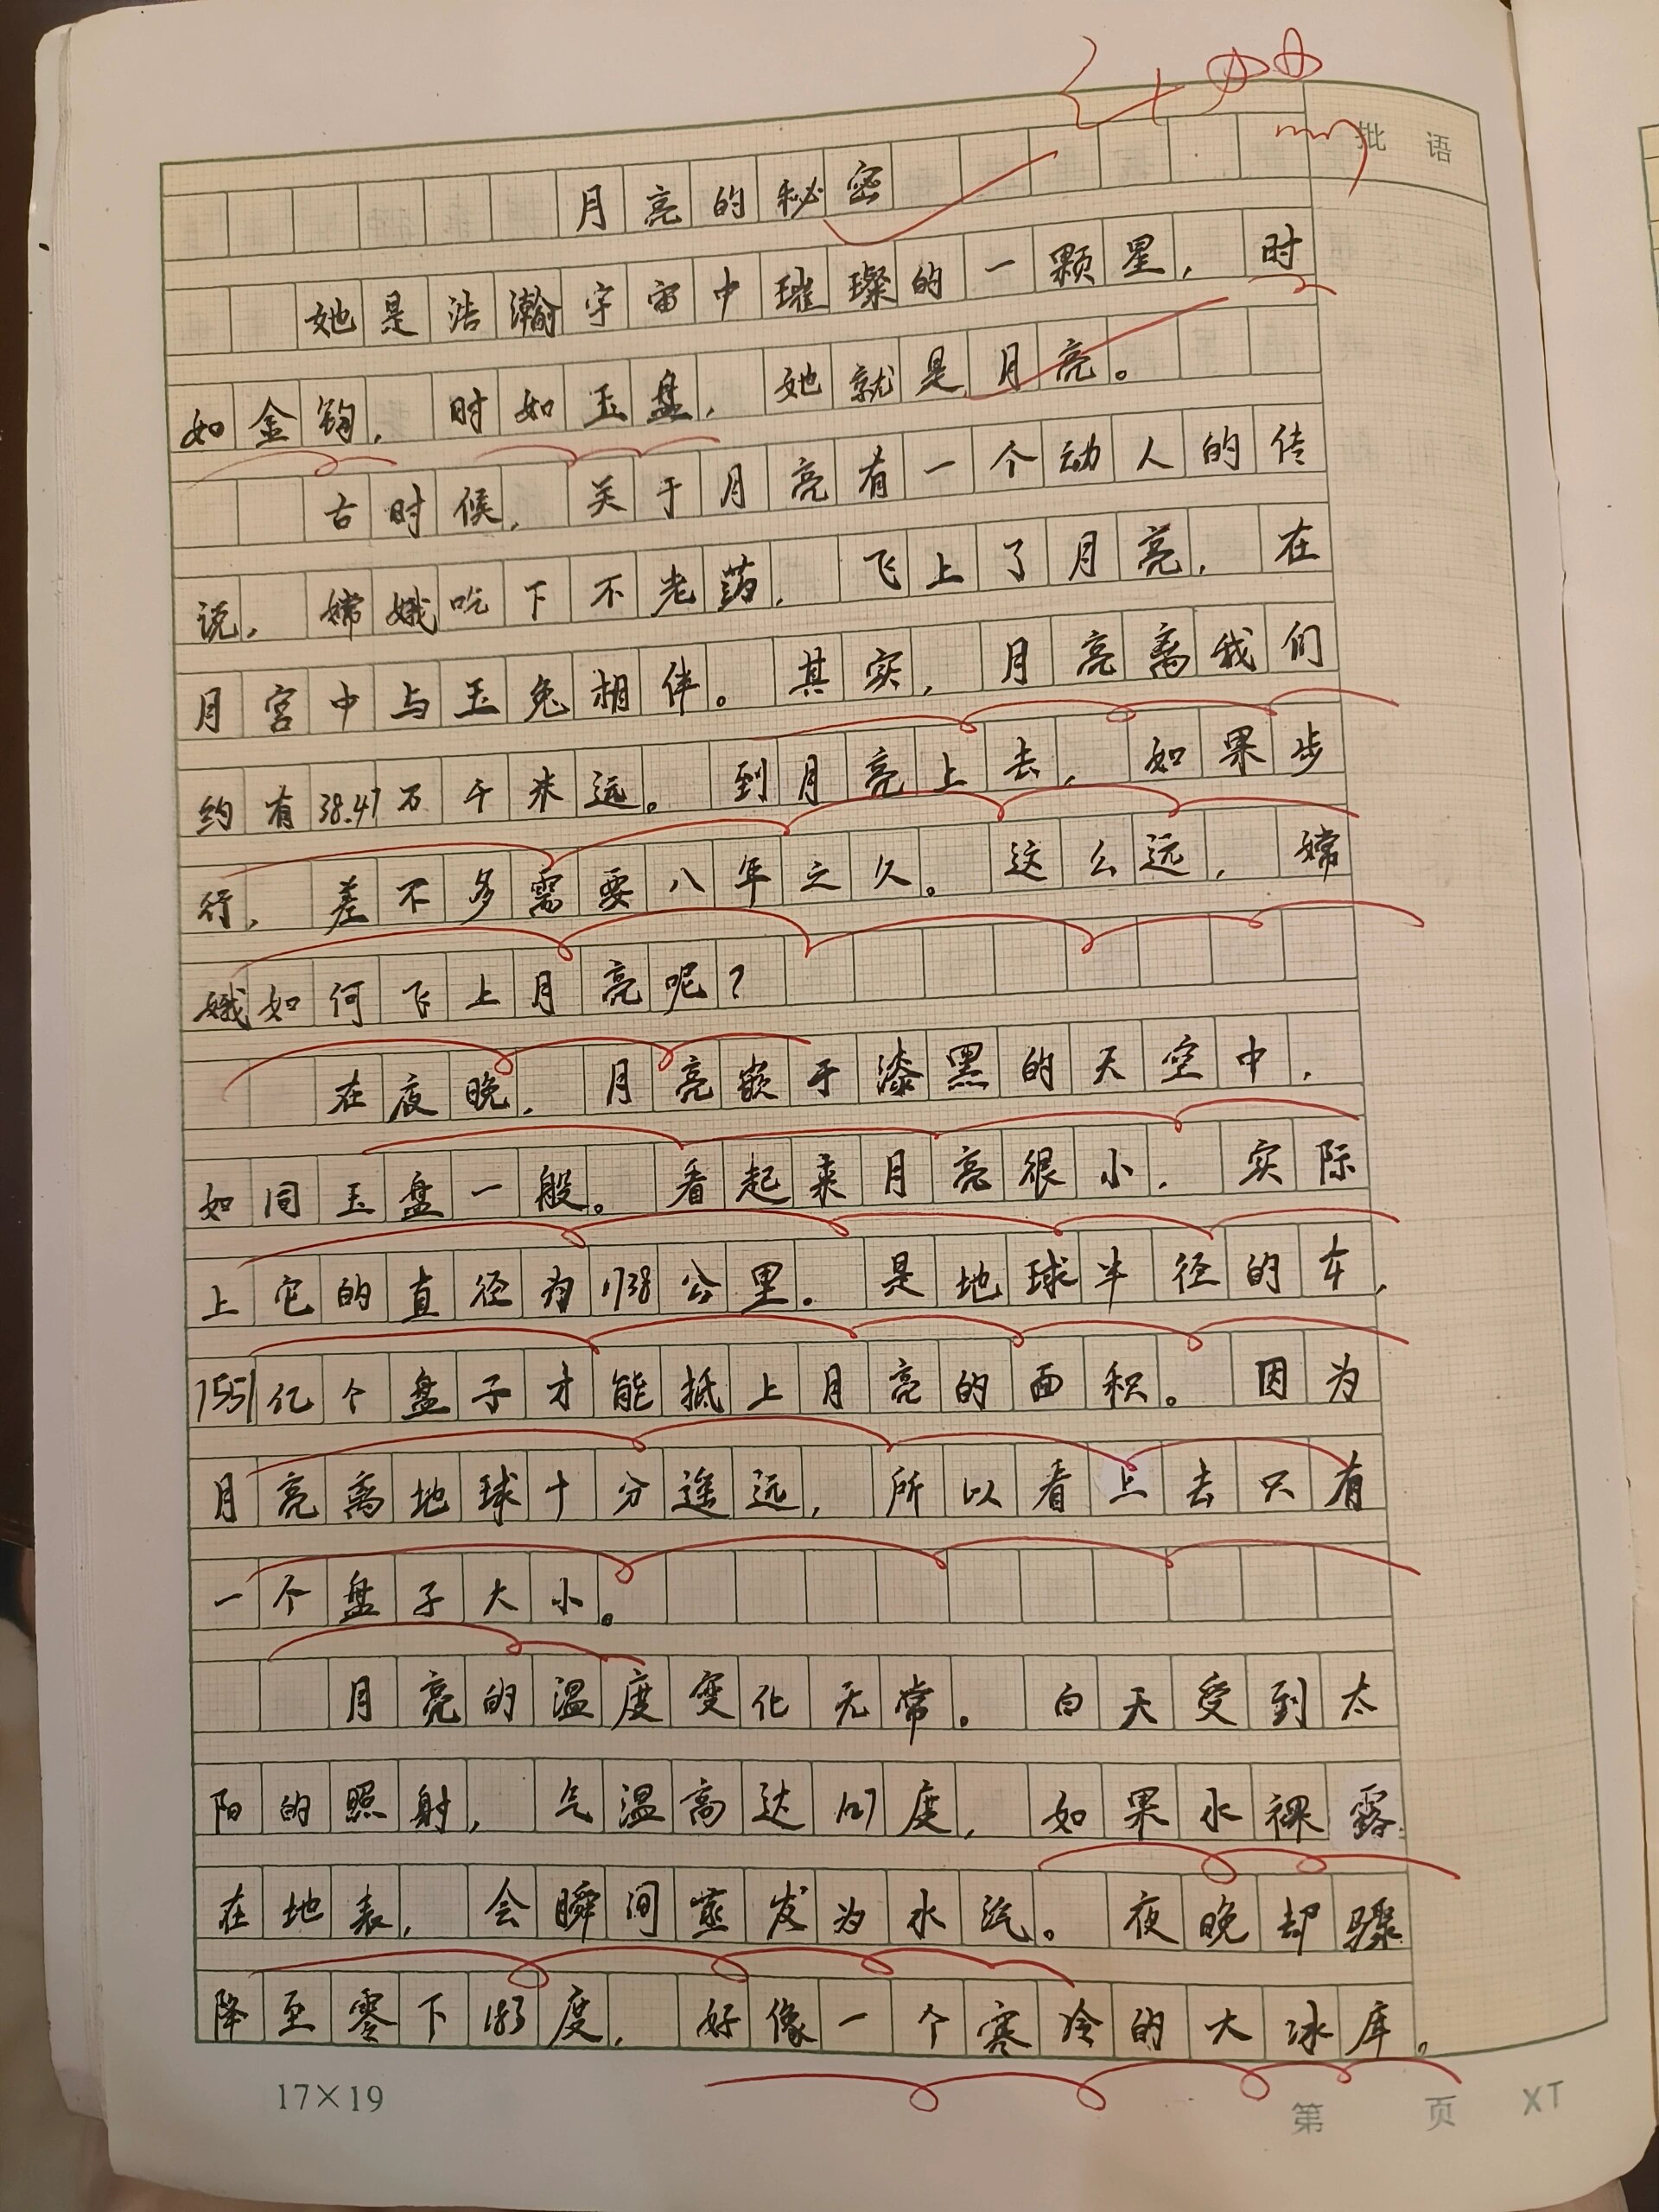 批 语
月亮的秘密
她是浩瀚宇宙中璀璨的一颗星，时
如金钩，时如玉盘，她就是月亮。
古时候，关于月亮有一个动人的传
说，嫦娥吃下不老药，飞上了月亮，在
月宫中与玉兔相伴。其实，月亮离我们
约有38.47万千米远。到月亮上去，如果步
行，差不多需要八年之久。这么远，嫦
娥如何飞上月亮呢？
在夜晚，月亮嵌于漆黑的天空中，
如同玉盘一般。看起来月亮很小，实际
上它的直径为1738公里。是地球半径的车，
7551亿个盘子才能抵上月亮的面积。因为
月亮离地球十分遥远，所以看上去只有
一个盘子大小。
月亮的温度变化无常。白天受到太
阳的照射，气温高达127度，如果水裸露
在地表，会瞬间蒸发为水汽。夜晚却骤
降至零下183度，好像一个寒冷的大冰库。
17×19
第 页 XT